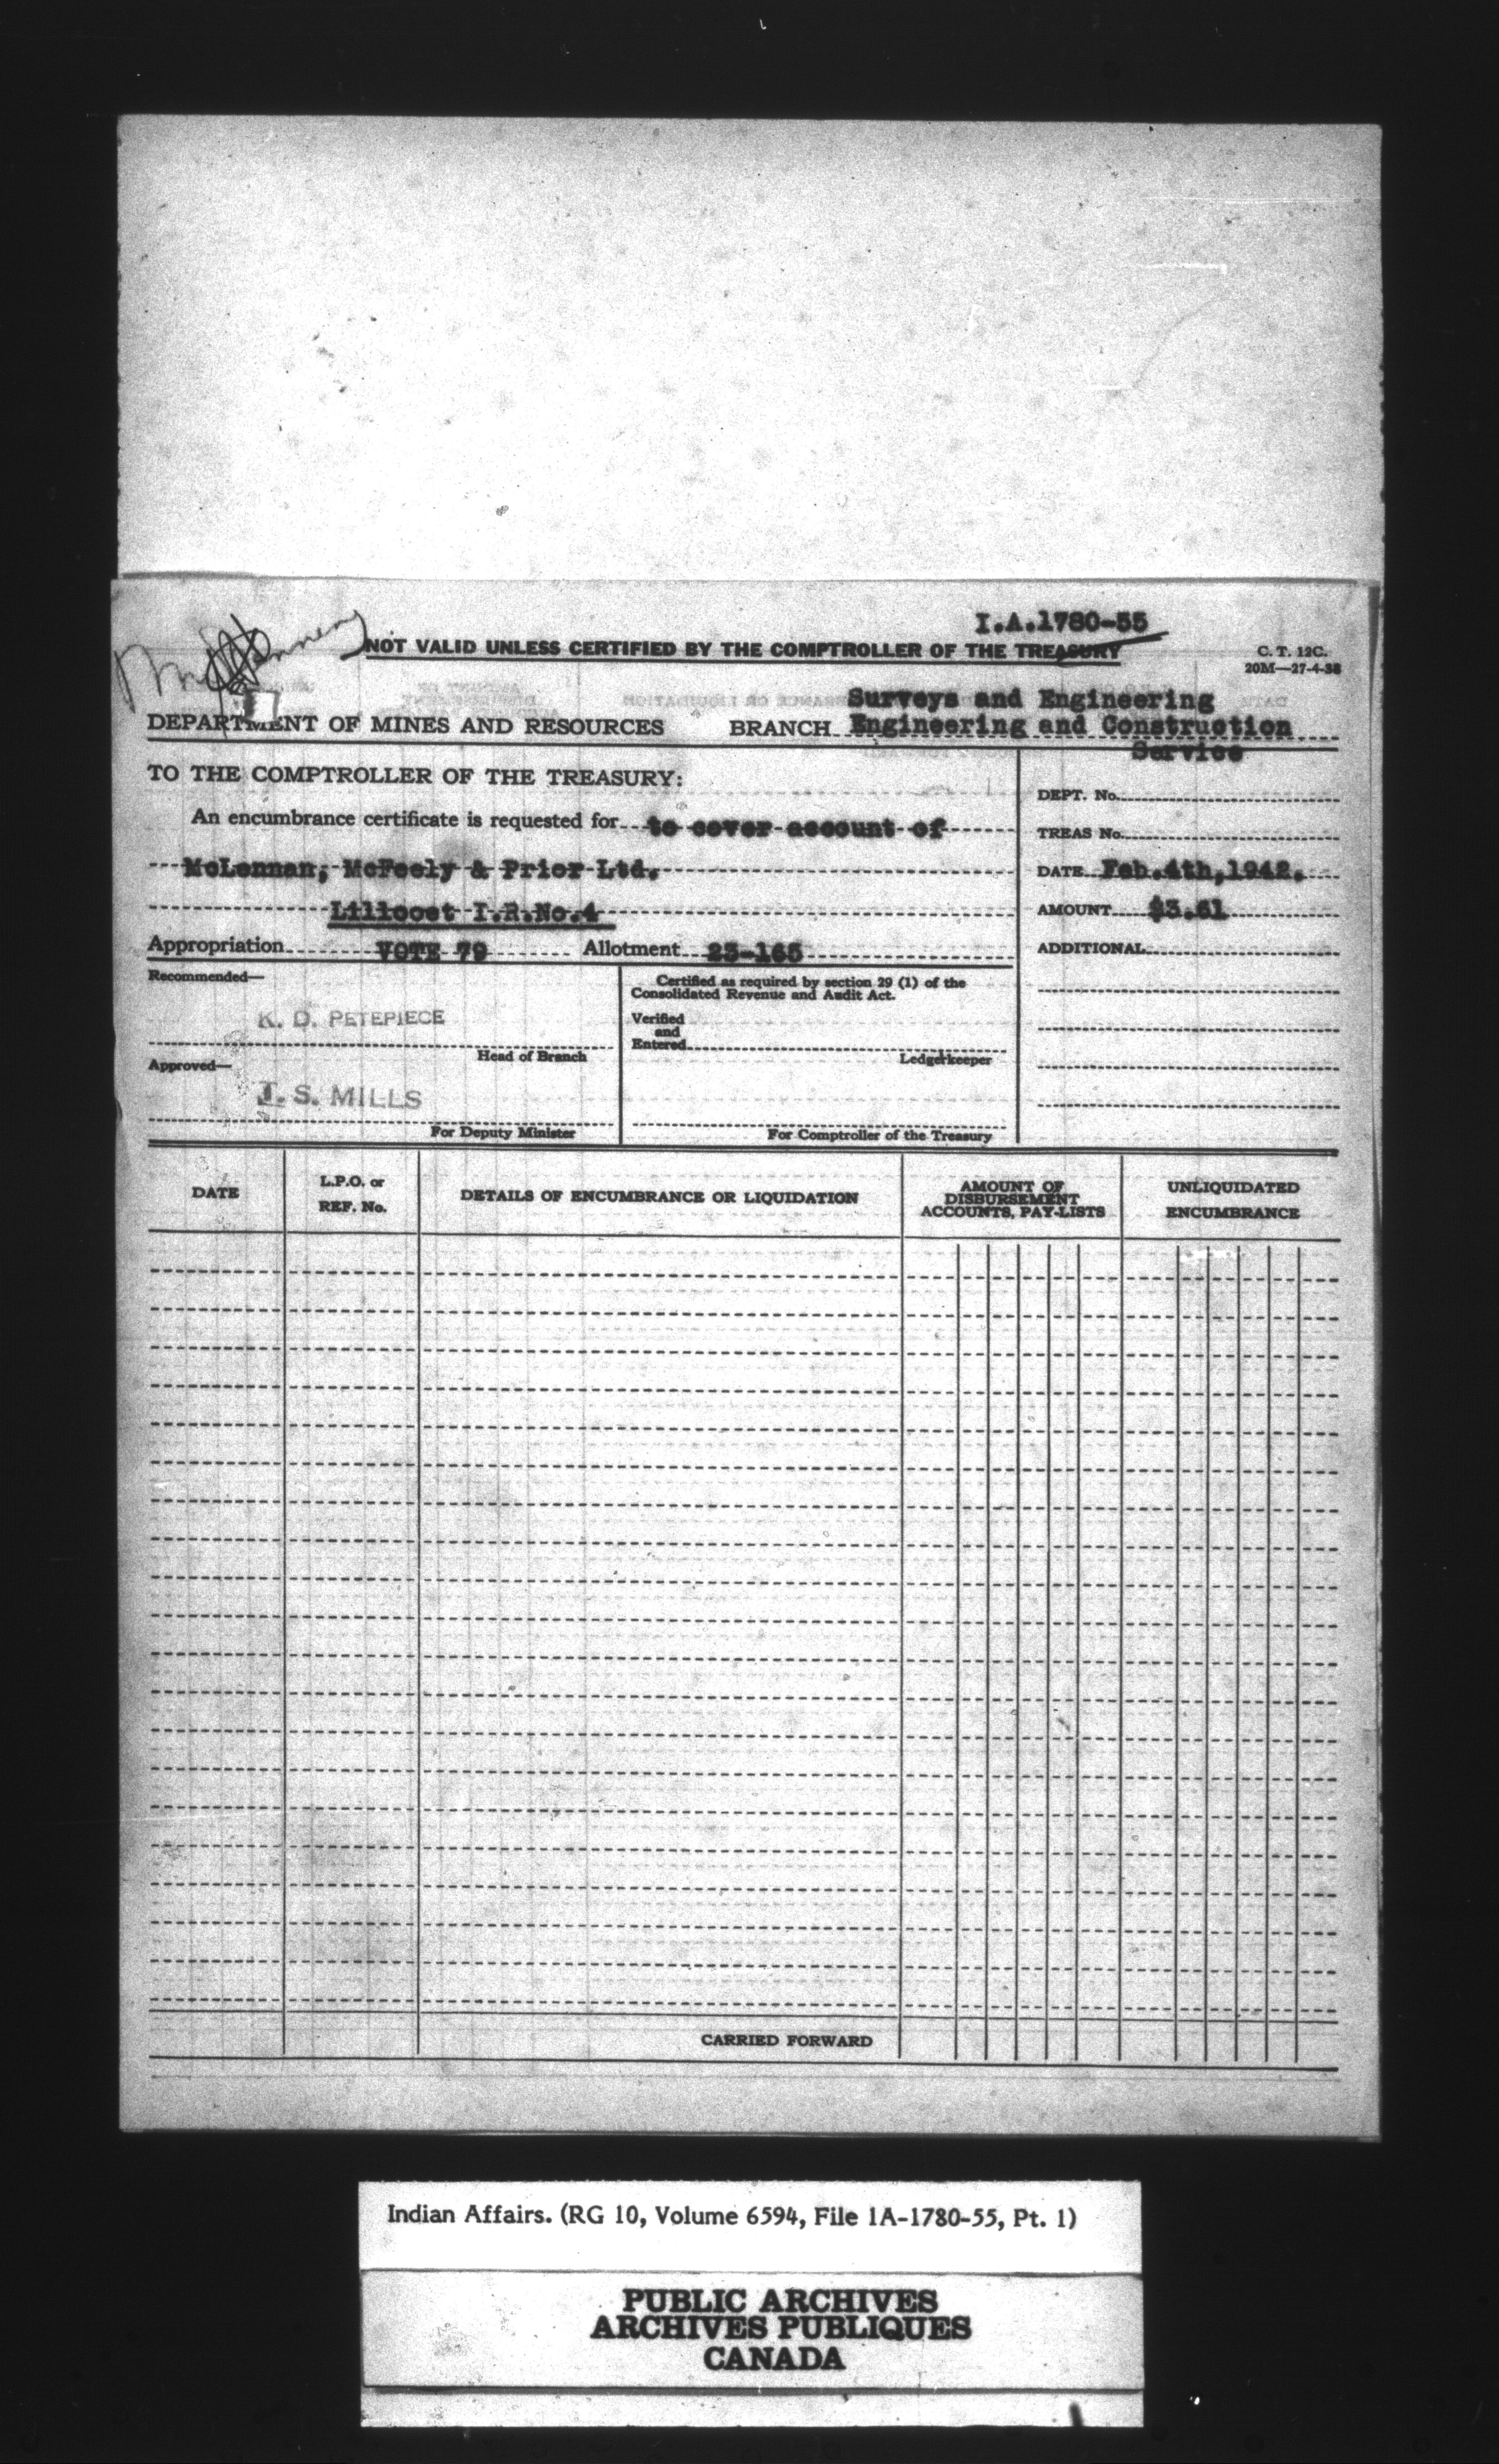 I.A.1780-55
NOT VALID UNLESS CERTIFIED BY THE COMPTROLLER OF THE TREASURY
C. T. 12C.
20M—27-4-38
Surveys and Engineering
DEPARTMENT OF MINES AND RESOURCES BRANCH Engineering and Construction
Service
TO THE COMPTROLLER OF THE TREASURY:
An encumbrance certificate is requested for to cover account of
McLennan, McFeely & Prior Ltd.
Lillooet I.R.No.4
Appropriation VOTE 79 Allotment 23-165
DEPT. No.
TREAS No.
DATE Feb.4th,1942.
AMOUNT $3.61
ADDITIONAL
Recommended—
K. D. PETEPIECE
Head of Branch
Approved—
J. S. MILLS
For Deputy Minister
Certified as required by section 29 (1) of the
Consolidated Revenue and Audit Act.
Verified
and
Entered
Ledgerkeeper
For Comptroller of the Treasury
DATE
L.P.O. or
REF. No.
DETAILS OF ENCUMBRANCE OR LIQUIDATION
AMOUNT OF
DISBURSEMENT
ACCOUNTS, PAY-LISTS
UNLIQUIDATED
ENCUMBRANCE
CARRIED FORWARD
Indian Affairs. (RG 10, Volume 6594, File 1A-1780-55, Pt. 1)
PUBLIC ARCHIVES
ARCHIVES PUBLIQUES
CANADA